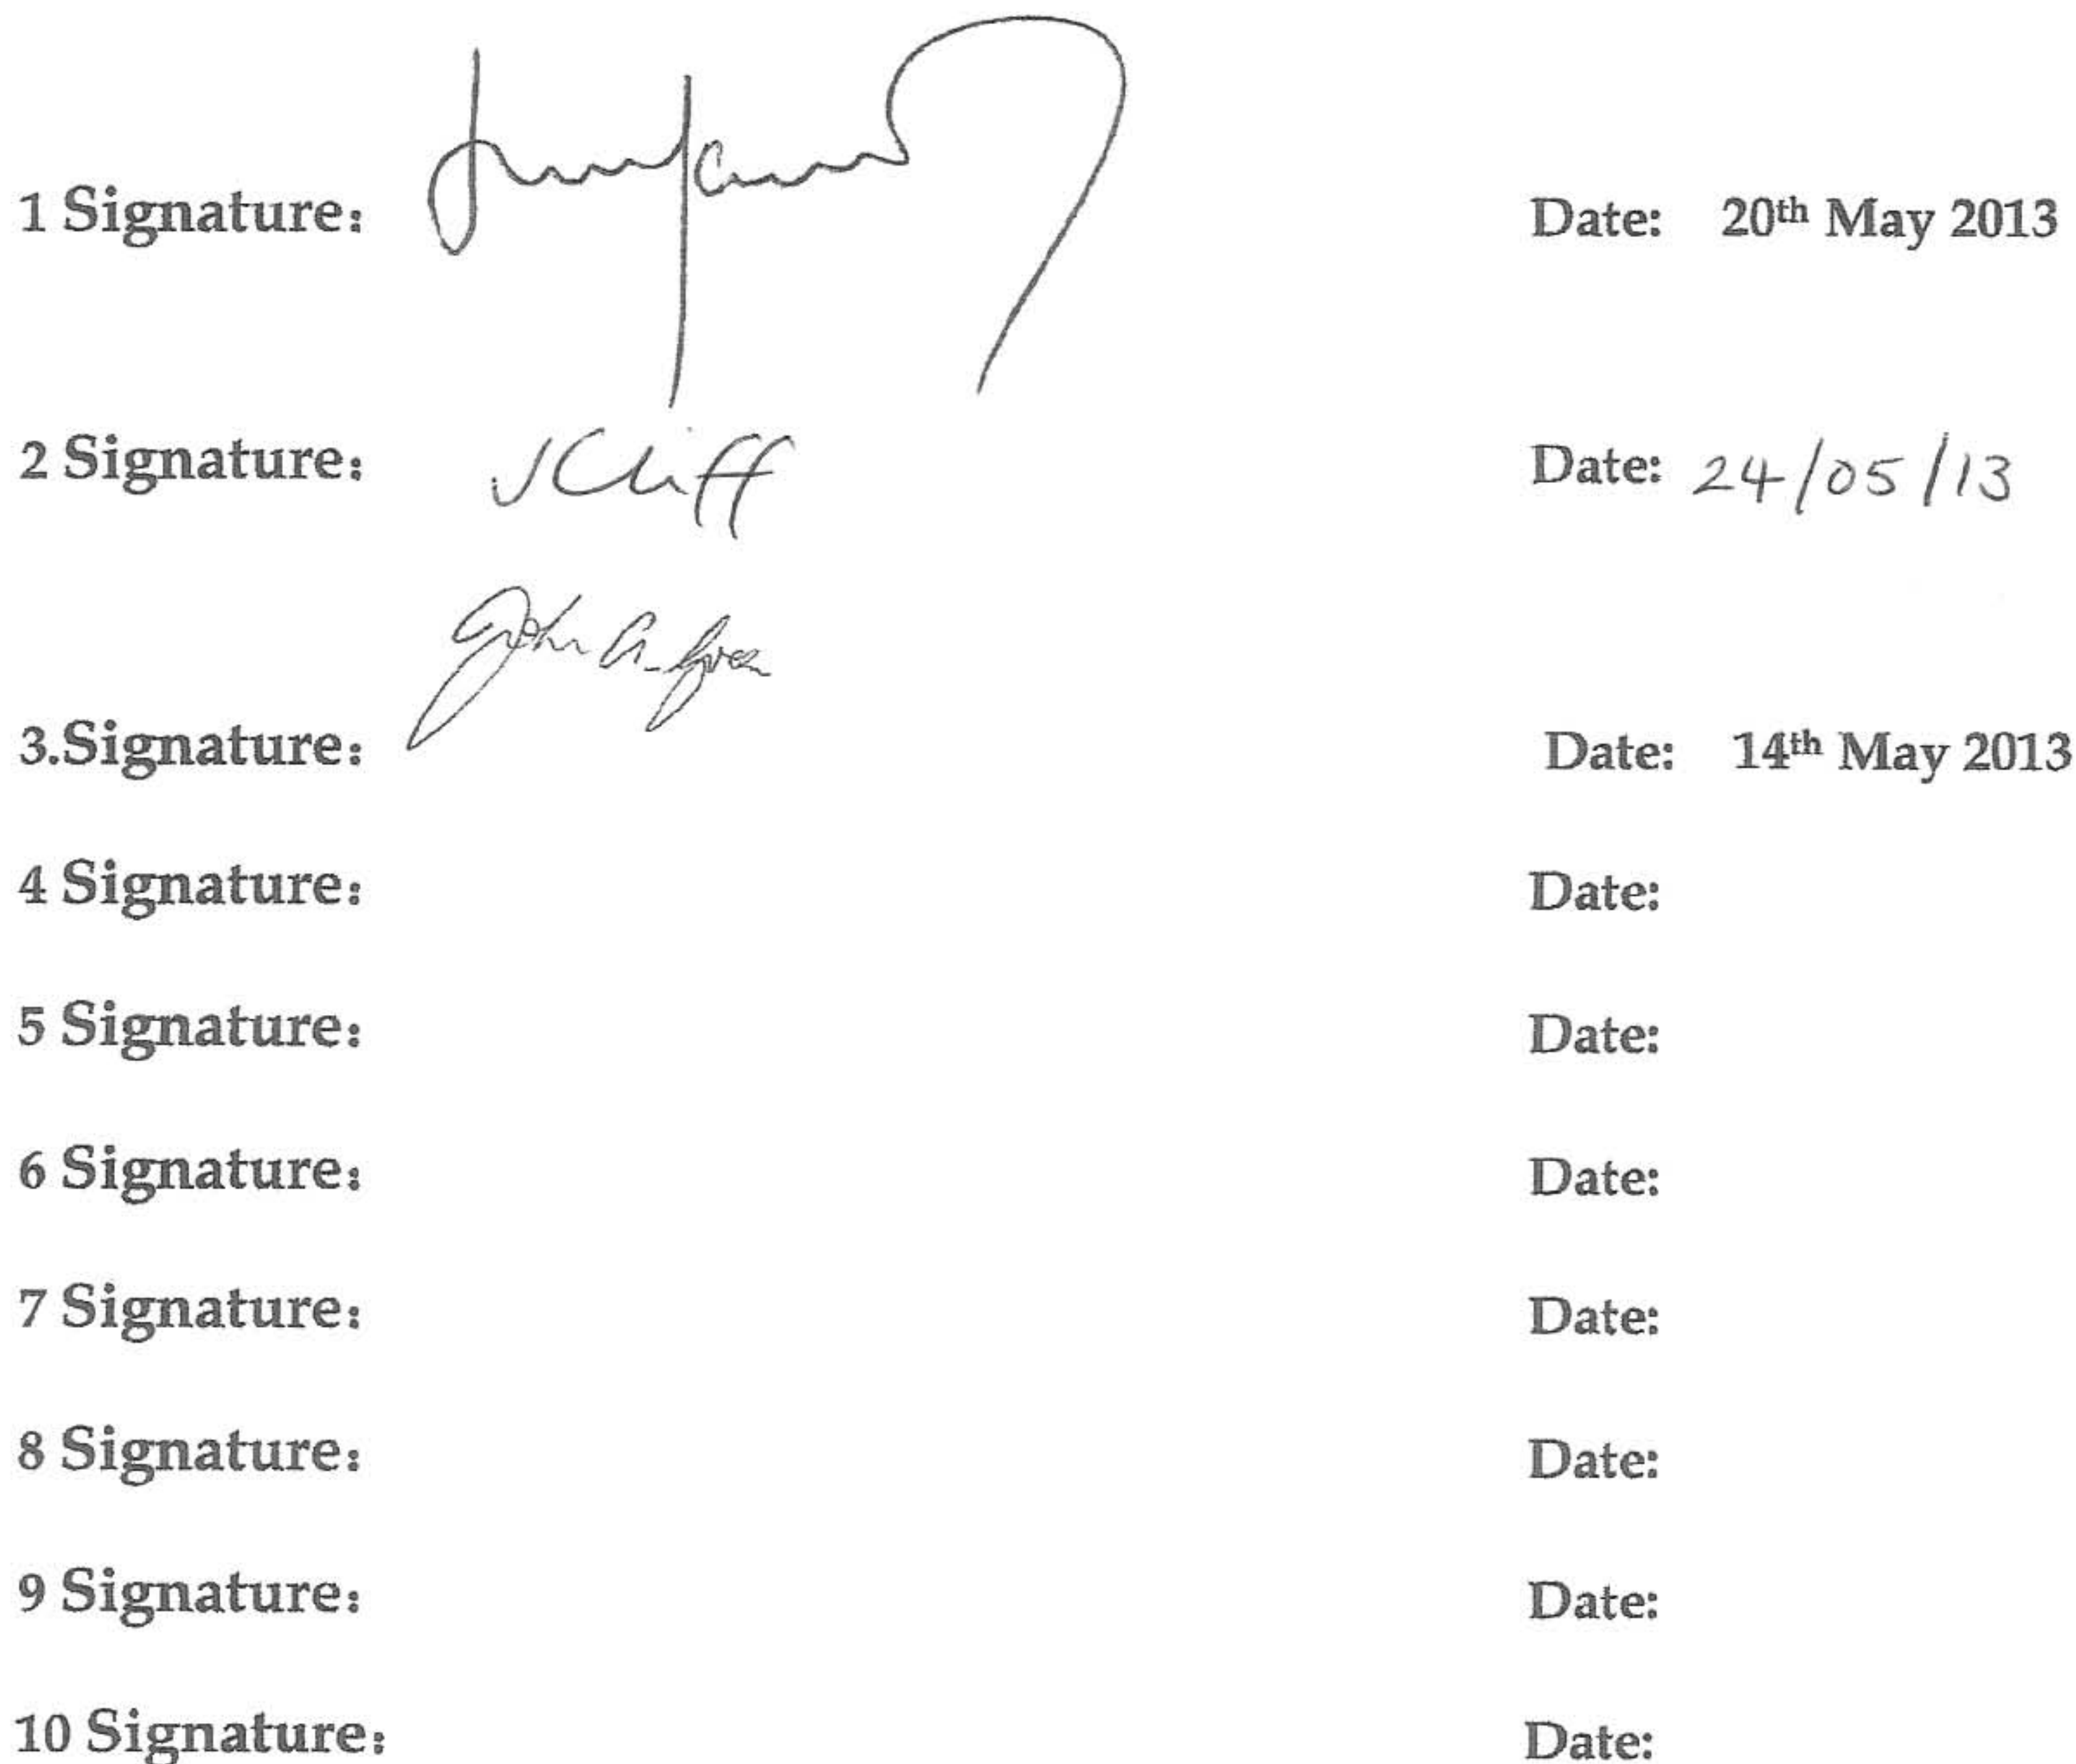 1 Signature: Date: 20th May 2013
2 Signature: JCliff Date: 24/05/13
John A.
3.Signature: Date: 14th May 2013
4 Signature: Date:
5 Signature: Date:
6 Signature: Date:
7 Signature: Date:
8 Signature: Date:
9 Signature: Date:
10 Signature: Date: